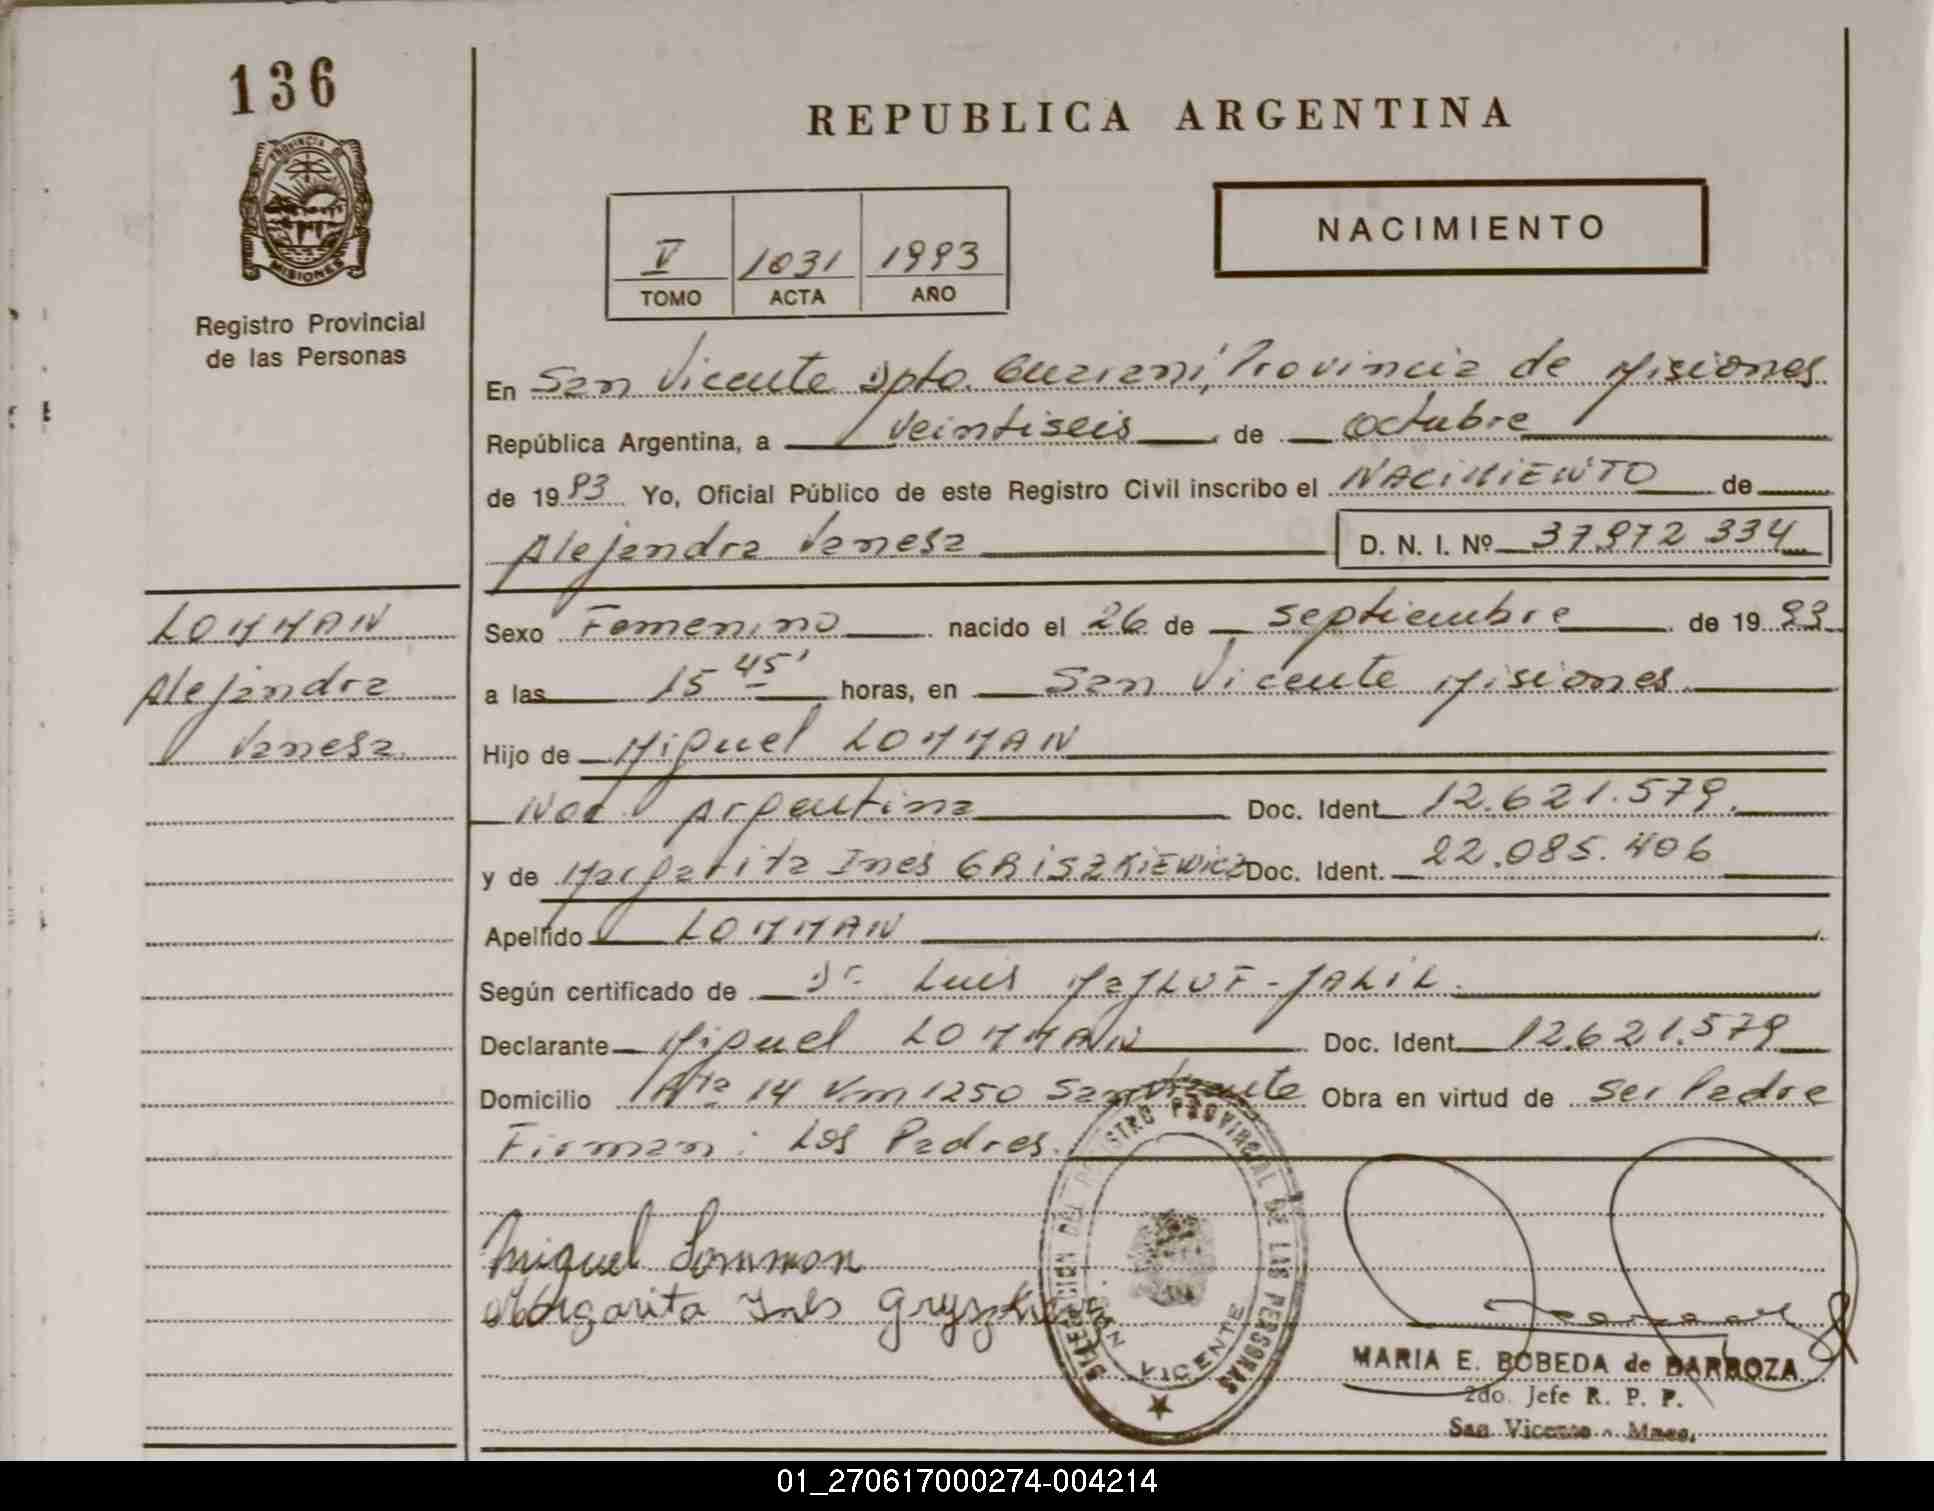 136
REPUBLICA ARGENTINA
PROVINCIA DE
MISIONES
Registro Provincial
de las Personas
NACIMIENTO
V 1031 1993
TOMO ACTA AÑO
En San Vicente Dpto. Guaraní, Provincia de Misiones
República Argentina, a Veintiseis de Octubre
de 19 93 Yo, Oficial Público de este Registro Civil inscribo el NACIMIENTO de
Alejandra Vanesa D. N. I. Nº 37.972 334
LOMMAN
Alejandra
Vanesa
Sexo Femenino nacido el 26 de Septiembre de 19 93
a las 15 45' horas, en San Vicente Misiones
Hijo de Miguel LOMMAN
Nac. Argentina Doc. Ident. 12.621.579.
y de Margarita Ines GRISZKIEWICZ Doc. Ident. 22.085.406
Apellido LOMMAN
Según certificado de Dr. Luis MAJLUF-JALIL.
Declarante Miguel LOMMAN Doc. Ident. 12.621.579
Domicilio Rta 14 Km 1250 San Vicente Obra en virtud de Ser Padre
Firman: Los Padres.
Miguel Lomman
Margarita Ines
DIRECCION DEL REGISTRO PROVINCIAL DE LAS PERSONAS
SAN VICENTE
MARIA E. BOBEDA de BARBOZA
2do. Jefe R. P. P.
San Vicente - Mnes.
01_270617000274-004214